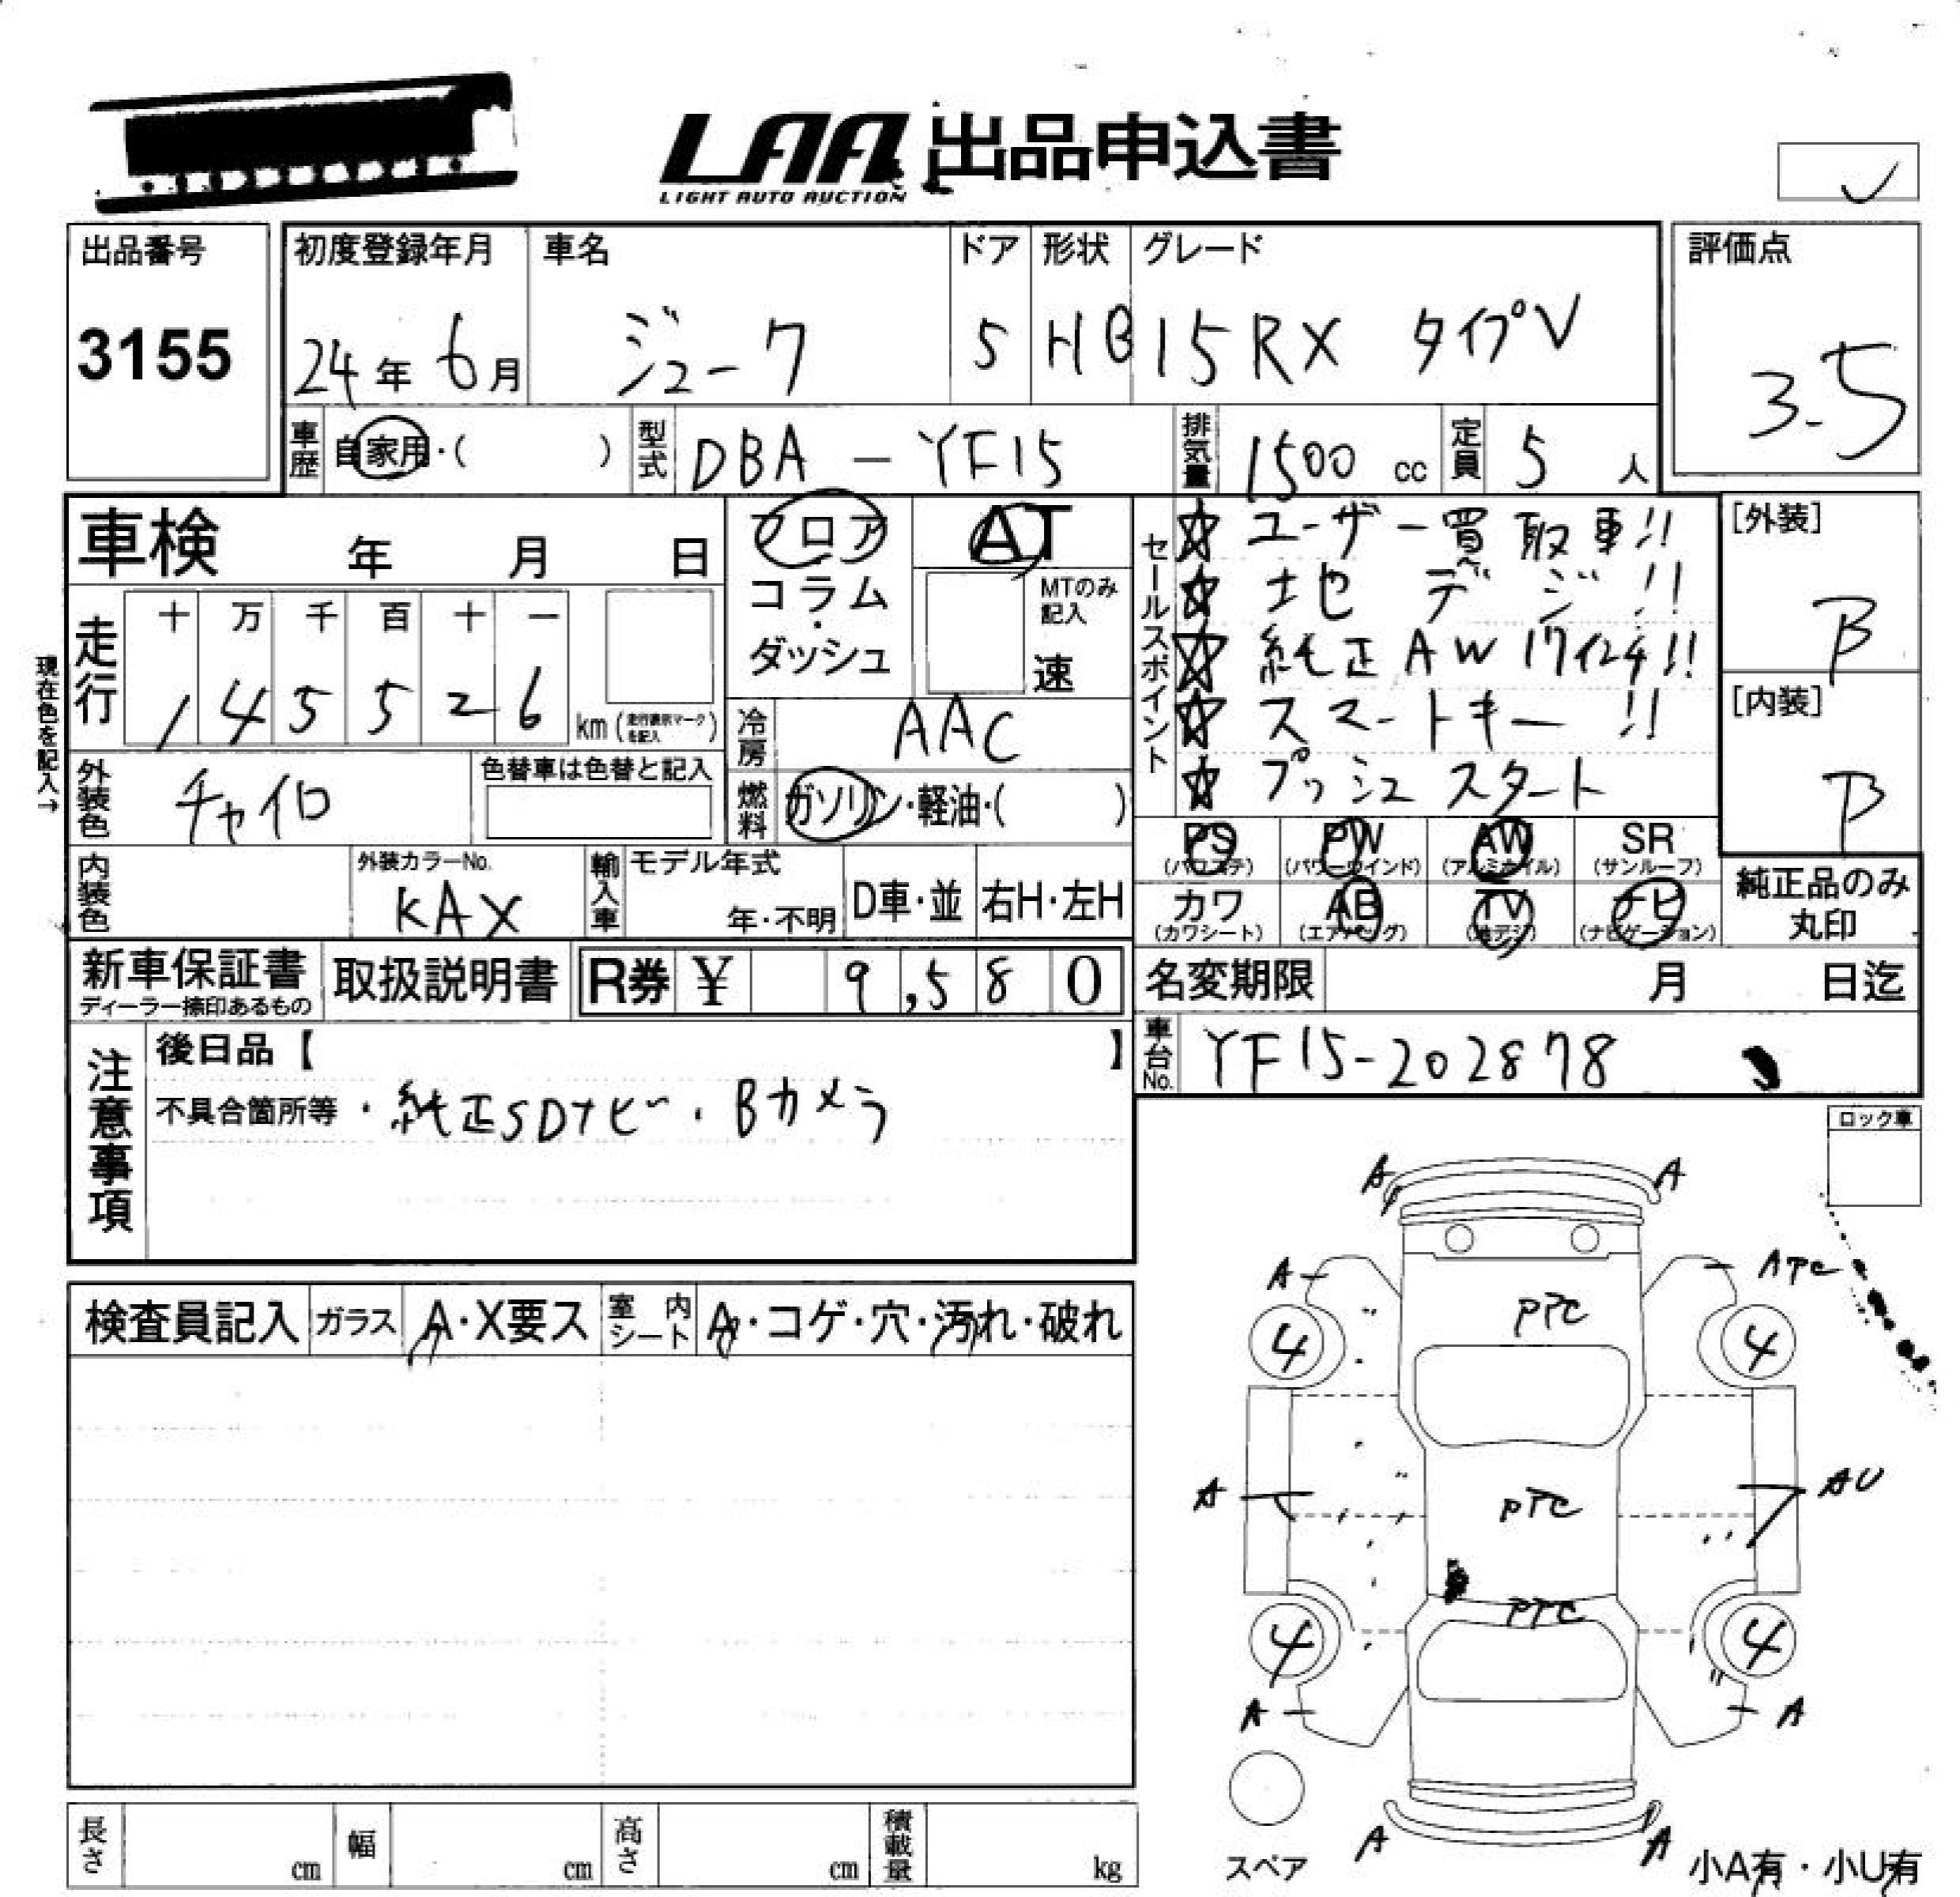 LAA 出品申込書
LIGHT AUTO AUCTION
出品番号
3155
初度登録年月
24年 6月
車名
ジューク
ドア
5
形状
HB
グレード
15RX タイプV
評価点
3.5
車歴
自家用・( )
型式
DBA - YF15
排気量
1500 cc
定員
5 人
車検 年 月 日
フロア
コラム
・
ダッシュ
AT
MTのみ記入
速
セールスポイント
☆ ユーザー買取車!!
☆ 地デジ!!
☆ 純正AW 17インチ!!
☆ スマートキー!!
☆ プッシュスタート
[外装]
B
[内装]
B
現在色を記入→
走行
十 万 千 百 十 一
1 4 5 5 2 6 km (走行表示マークを記入)
冷房
AAC
外装色
チャイロ
色替車は色替と記入
燃料
ガソリン・軽油・( )
内装色
外装カラーNo.
KAX
輸入車
モデル年式
年・不明
D車・並
右H・左H
PS
(パワステ)
PW
(パワーウインド)
AW
(アルミホイル)
SR
(サンルーフ)
カワ
(カワシート)
AB
(エアバッグ)
TV
(地デジ)
ナビ
(ナビゲーション)
純正品のみ
丸印
新車保証書
ディーラー捺印あるもの
取扱説明書
R券 ¥ 9,580
名変期限 月 日迄
車台No.
YF15-202878
注意事項
後日品【 】
不具合箇所等 ・純正SDナビ・Bカメラ
ロック車
検査員記入
ガラス
A・X要ス
室内シート
A・コゲ・穴・汚れ・破れ
A A
A APC
PTC
4 4
A PTC AU
PTC
4 4
A A
A A
スペア
小A有・小U有
長さ cm
幅 cm
高さ cm
積載量 kg